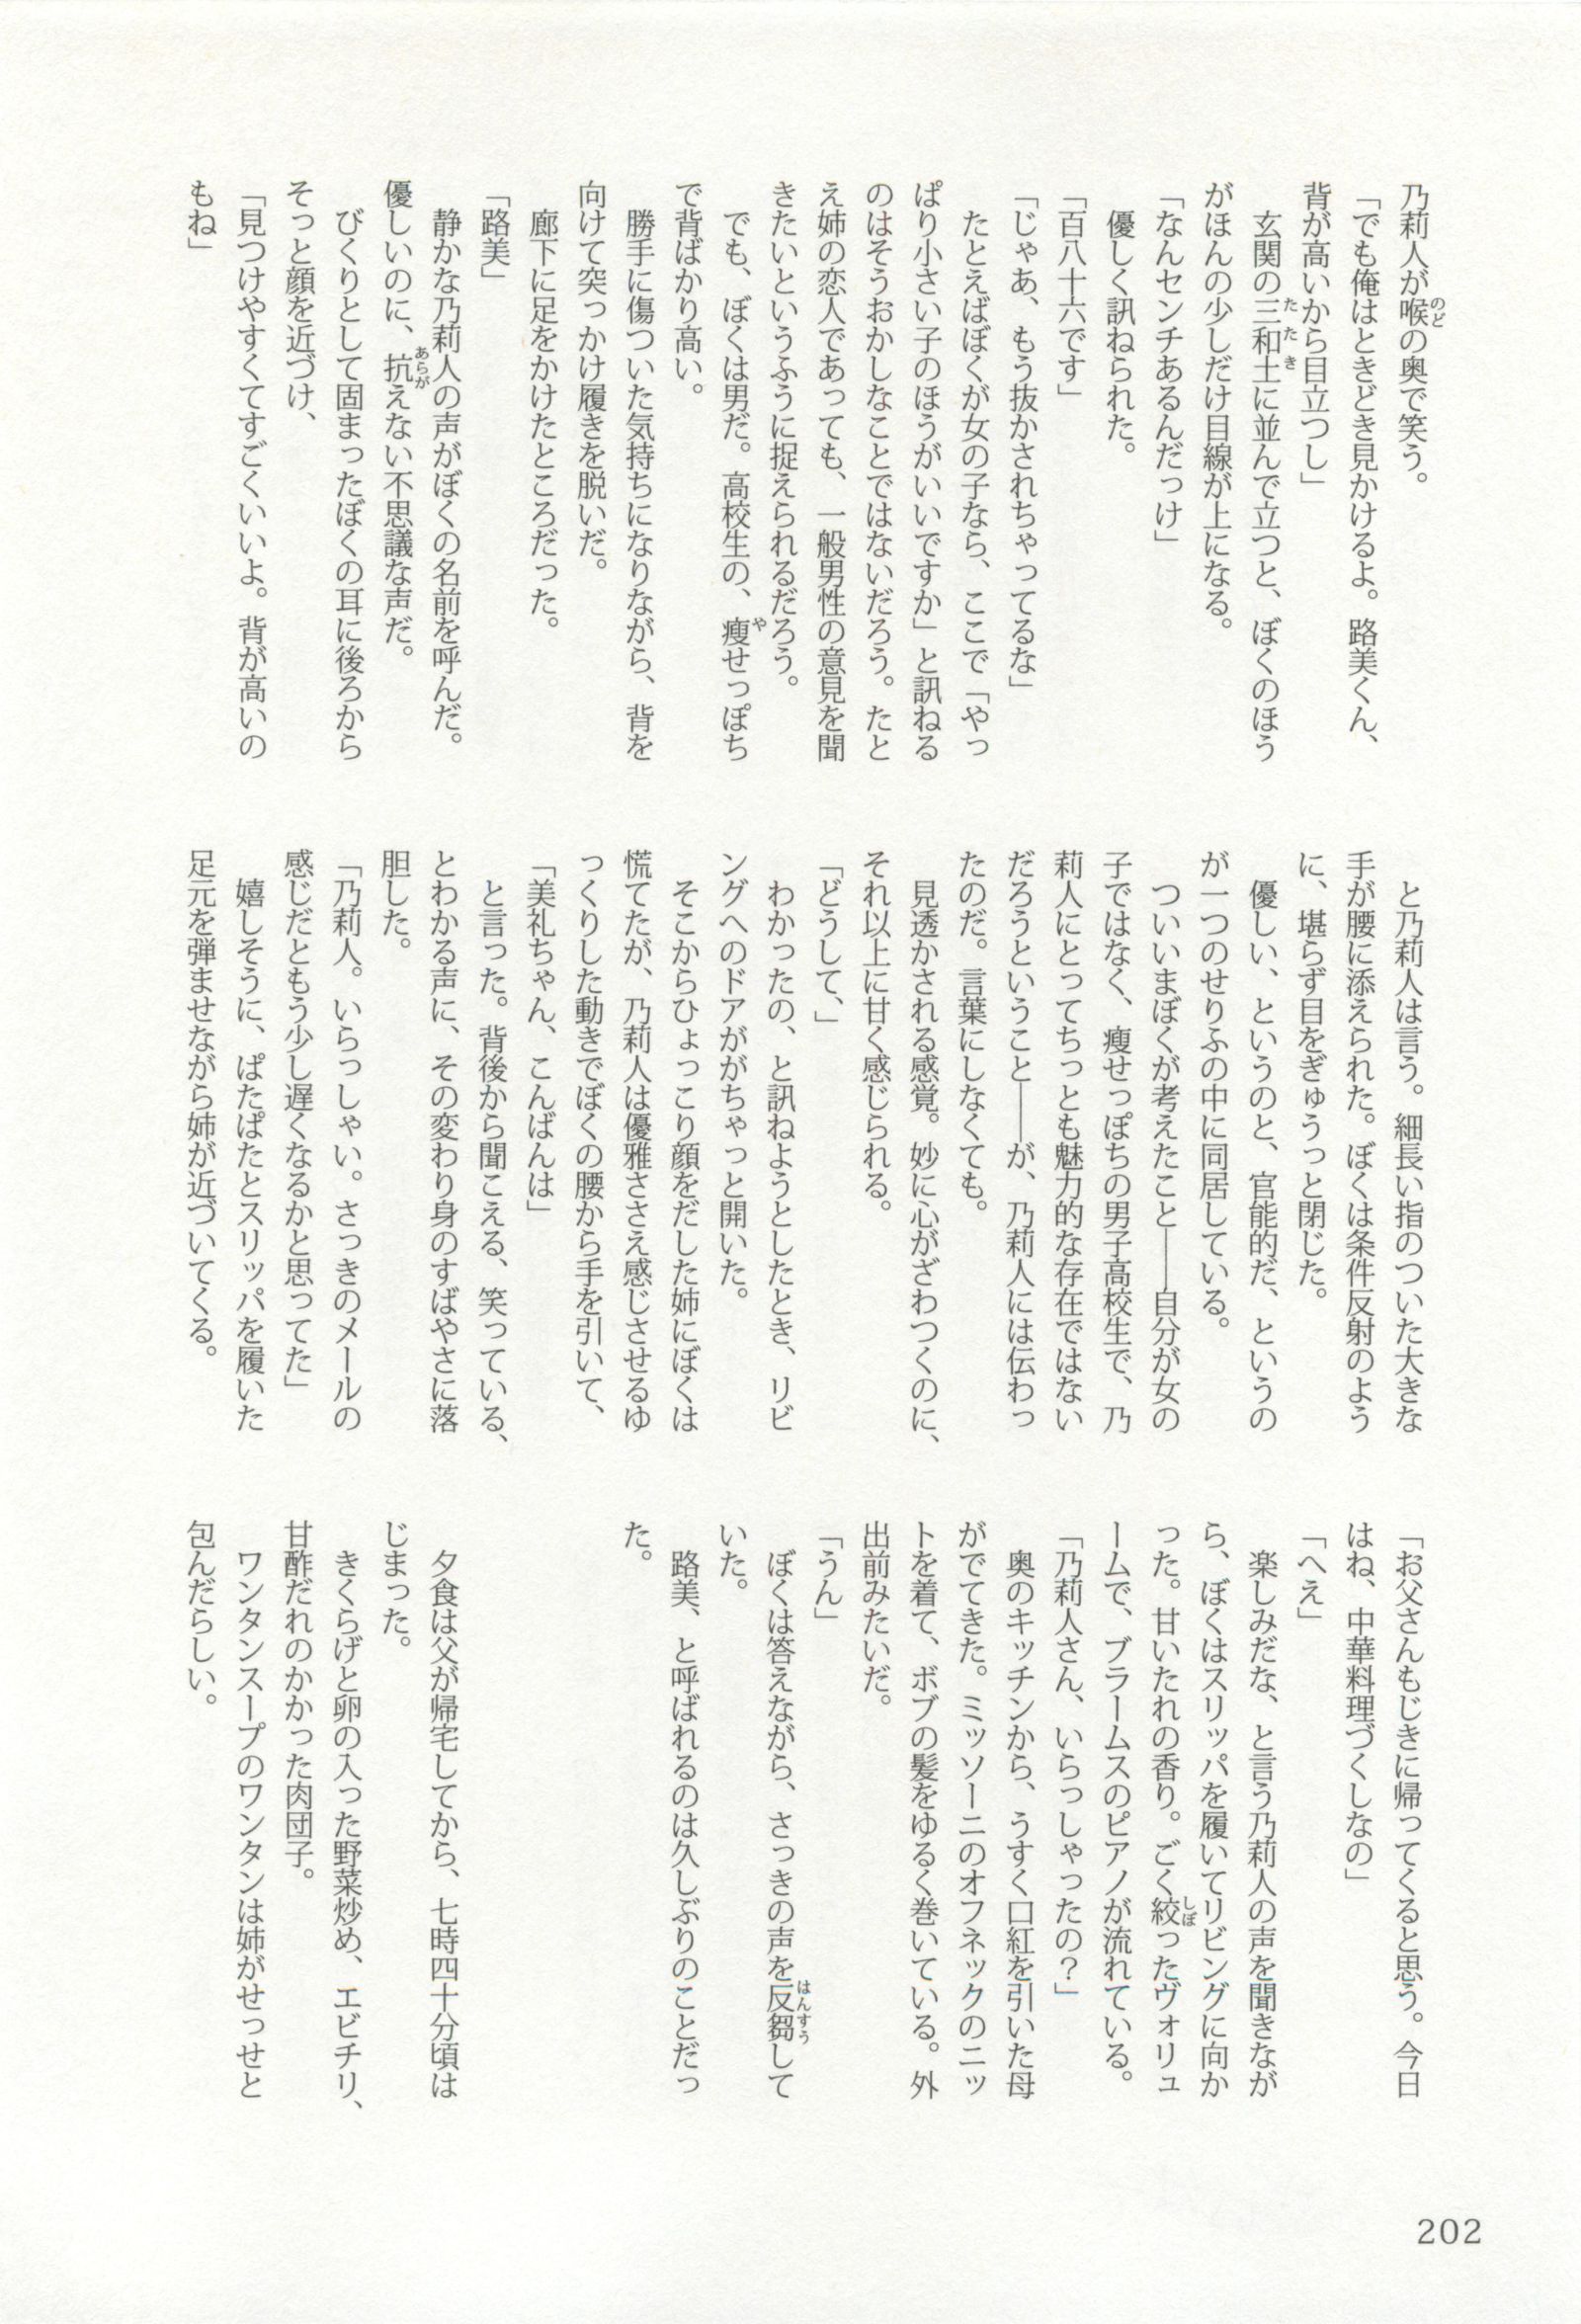 乃莉人が喉の奥で笑う。
「でも俺はときどき見かけるよ。路美くん、
背が高いから目立つし」
玄関の三和土に並んで立つと、ぼくのほう
がほんの少しだけ目線が上になる。
「なんセンチあるんだっけ」
優しく訊ねられた。
「百八十六です」
「じゃあ、もう抜かされちゃってるな」
たとえばぼくが女の子なら、ここで「やっ
ぱり小さい子のほうがいいですか」と訊ねる
のはそうおかしなことではないだろう。たと
え姉の恋人であっても、一般男性の意見を聞
きたいというふうに捉えられるだろう。
でも、ぼくは男だ。高校生の、瘦せっぽち
で背ばかり高い。
勝手に傷ついた気持ちになりながら、背を
向けて突っかけ履きを脱いだ。
廊下に足をかけたところだった。
「路美」
静かな乃莉人の声がぼくの名前を呼んだ。
優しいのに、抗えない不思議な声だ。
びくりとして固まったぼくの耳に後ろから
そっと顔を近づけ、
「見つけやすくてすごくいいよ。背が高いの
もね」
と乃莉人は言う。細長い指のついた大きな
手が腰に添えられた。ぼくは条件反射のよう
に、堪らず目をぎゅうっと閉じた。
優しい、というのと、官能的だ、というの
が一つのせりふの中に同居している。
ついいまぼくが考えたこと――自分が女の
子ではなく、瘦せっぽちの男子高校生で、乃
莉人にとってちっとも魅力的な存在ではない
だろうということ――が、乃莉人には伝わっ
たのだ。言葉にしなくても。
見透かされる感覚。妙に心がざわつくのに、
それ以上に甘く感じられる。
「どうして、」
わかったの、と訊ねようとしたとき、リビ
ングへのドアががちゃっと開いた。
そこからひょっこり顔をだした姉にぼくは
慌てたが、乃莉人は優雅ささえ感じさせるゆ
っくりした動きでぼくの腰から手を引いて、
「美礼ちゃん、こんばんは」
と言った。背後から聞こえる、笑っている、
とわかる声に、その変わり身のすばやさに落
胆した。
「乃莉人。いらっしゃい。さっきのメールの
感じだともう少し遅くなるかと思ってた」
嬉しそうに、ぱたぱたとスリッパを履いた
足元を弾ませながら姉が近づいてくる。
「お父さんもじきに帰ってくると思う。今日
はね、中華料理づくしなの」
「へえ」
楽しみだな、と言う乃莉人の声を聞きなが
ら、ぼくはスリッパを履いてリビングに向か
った。甘いたれの香り。ごく絞ったヴォリュ
ームで、ブラームスのピアノが流れている。
「乃莉人さん、いらっしゃったの？」
奥のキッチンから、うすく口紅を引いた母
がでてきた。ミッソーニのオフネックのニッ
トを着て、ボブの髪をゆるく巻いている。外
出前みたいだ。
「うん」
ぼくは答えながら、さっきの声を反芻して
いた。
路美、と呼ばれるのは久しぶりのことだっ
た。
夕食は父が帰宅してから、七時四十分頃は
じまった。
きくらげと卵の入った野菜炒め、エビチリ、
甘酢だれのかかった肉団子。
ワンタンスープのワンタンは姉がせっせと
包んだらしい。
202